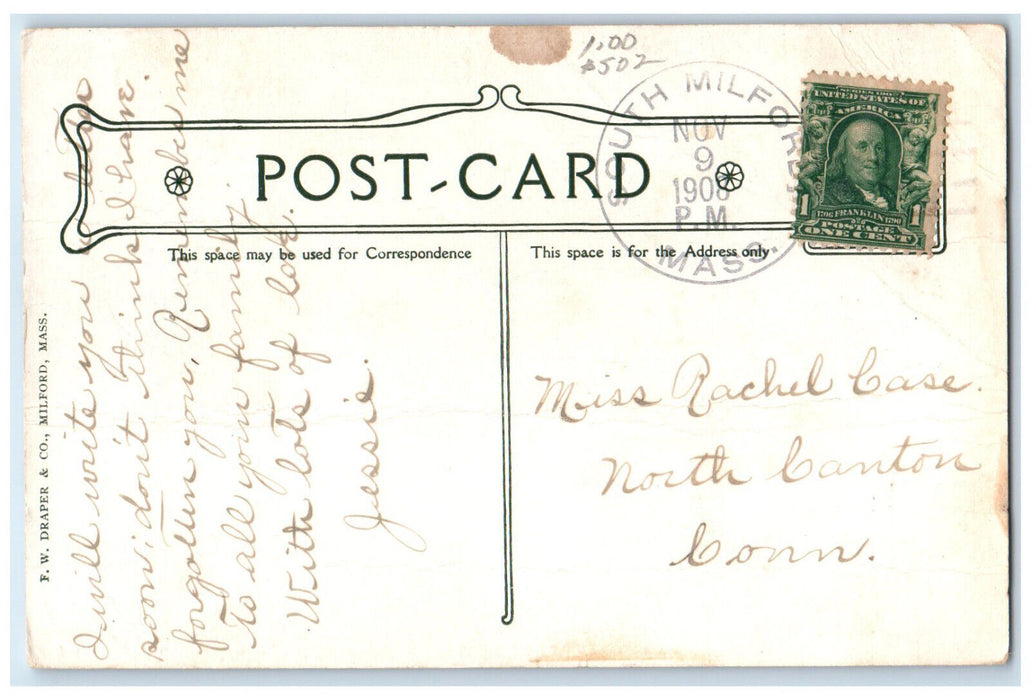 1.00
#502
SOUTH MILFORD
NOV
9
1908
P.M.
MASS.
SERIES 1902
UNITED STATES OF
AMERICA
1 1
1706 FRANKLIN 1790
POSTAGE
ONE CENT
POST-CARD
This space may be used for Correspondence
This space is for the Address only
F. W. DRAPER & CO., MILFORD, MASS.
I will write you a letter
soon, don't think I have
forgotten you, Remember me
to all your family.
With lots of love.
Jessie.
Miss Rachel Case.
North Canton
Conn.